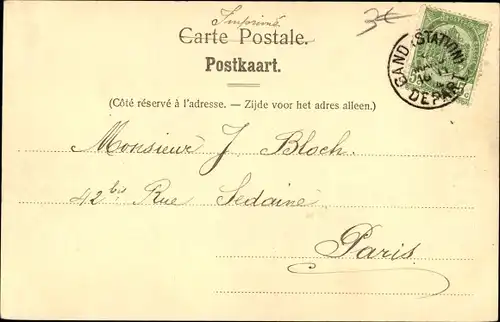 Imprimé.
Carte Postale.
Postkaart.
GAND (STATION)
DEPART
(Côté réservé à l'adresse. – Zijde voor het adres alleen.)
Monsieur J Bloch.
42 bis Rue Sedaine
Paris